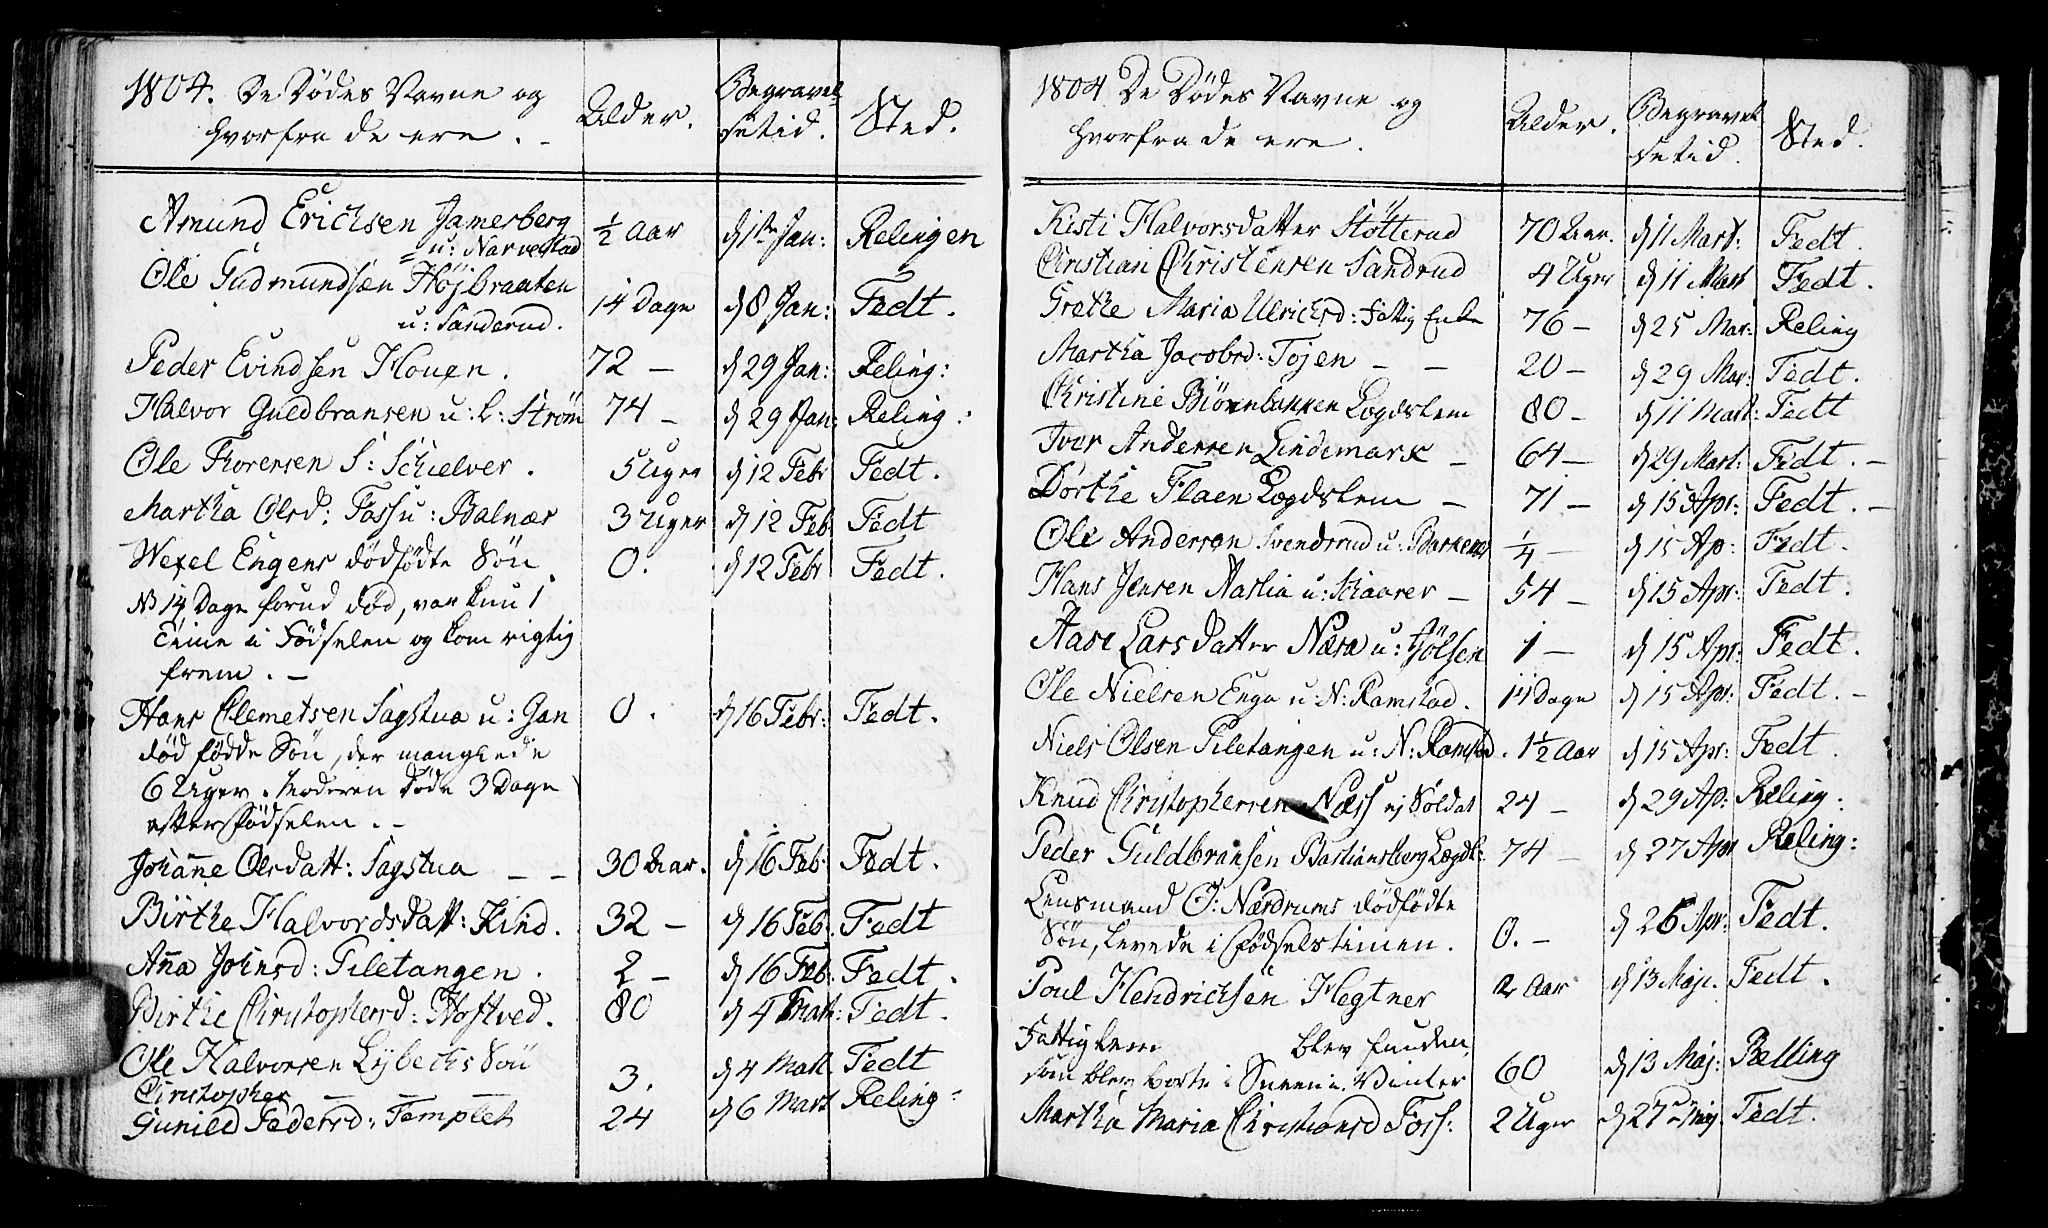 1804. De Dødes Navne og
hvorfra de ere. Alder. Begravel-
setid. Sted.
Amund Erichsen Jamerberg
u: Narvestad ½ Aar d 1ste Jan: Relingen
Ole Gudmundsen Höjbraaten
u: Sanderud. 14 Dage d 8 Jan: Fedt.
Peder Evindsen Houen. 72 – d 29 Jan: Reling:
Halvor Guldbransen u: L: Strøm 74 – d 29 Jan: Reling:
Ole Thorensen S: Schielver. 5 Uger d 12 Febr Fedt.
Martha Olsd: Foss u: Balnæs 3 Uger d 12 Feb: Fedt
Wexel Engens dødfødte Søn 0. d 12 Febr Fedt.
NB 14 Dage forud død, var kun 1
Time i Fødselen og kom rigtig
frem. –
Hans Clemetsen Sagstua u: Gan 0. d 16 Febr: Fedt.
død fødde Søn, der manglede
6 Uger. Moderen døde 3 Dage
efter Fødselen. –
Johanne Olsdatt: Sagstua – – 30 Aar. d 16 Feb: Fedt.
Birthe Halvordsdatt: Kind. 32 – d 16 Feb: Fedt
Anna Johnsd: Piletangen. 2 – d 16 Feb: Fedt.
Birthe Christophersd: Hostved. 80 d 4 Mart: Fedt.
Ole Halvorsen Lybechs Søn
Christopher – – – 3. d 4 Mart Fedt
Gunild Pedersd: Templet 24 d 6 Mart Reling:
1804 De Dødes Navne og
hvorfra de ere. Alder. Begravel
setid. Sted.
Kisti Halvorsdatter Støtterud 70 Aar. d 11 Mart: Fedt.
Christian Christensen Sandrud 4 Uger d 11 Mart Fedt.
Grethe Maria Ulrichsd: Fattig Enke 76 – d 25 Mar: Reling
Martha Jacobsd: Tøjen – – 20 – d 29 Mar: Fedt.
Christine Biørnbakken Lægdslem 80 – d 11 Mart: Fedt
Iver Andersen Lindemark – 64 – d 29 Mart: Fedt. –
Dorthe Flaen Lægdslem – 71 – d 15 Apr: Fedt. –
Ole Andersen Svendsrud u: Barkenes ¼ – d 15 Ap: Fedt.
Hans Jensen Aaslia u: Schaarer – 54 – d 15 Apr: Fedt.
Aase Lars datter Næra u: Jølsen 1 – d 15 Apr: Fedt.
Ole Nielsen Enga u: N: Ramstad. 14 Dage d 15 Apr: Fedt. –
Niels Olsen Piletangen u: N: Ramstad. 1½ Aar d 15 Apr: Fedt.
Knud Christophersen Næss ej Soldat 24 – d 29 Ap: Reling:
Peder Guldbransen Bastiansberg Lægdsl: 74 – d 27 Apr Reling:
Lensmand O: Nærdrums dødfødte
Søn, levede i Fødselstimen. 0. – d 26 Apr: Fedt.
Poul Hendrichsen Hegtner 2 Aar d 13 Maj. Fedt.
Fattiglem blev funden,
som blev borte i Sneen i Vinter 60 d 13 Maj: Relling
Martha Maria Christiansd Foss: 2 Uger d 27de Maj Fedt.